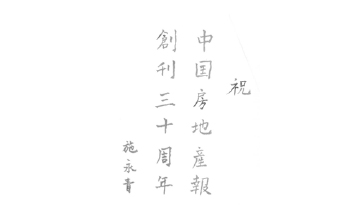 祝
中国房地產報
創刊三十周年
施永青